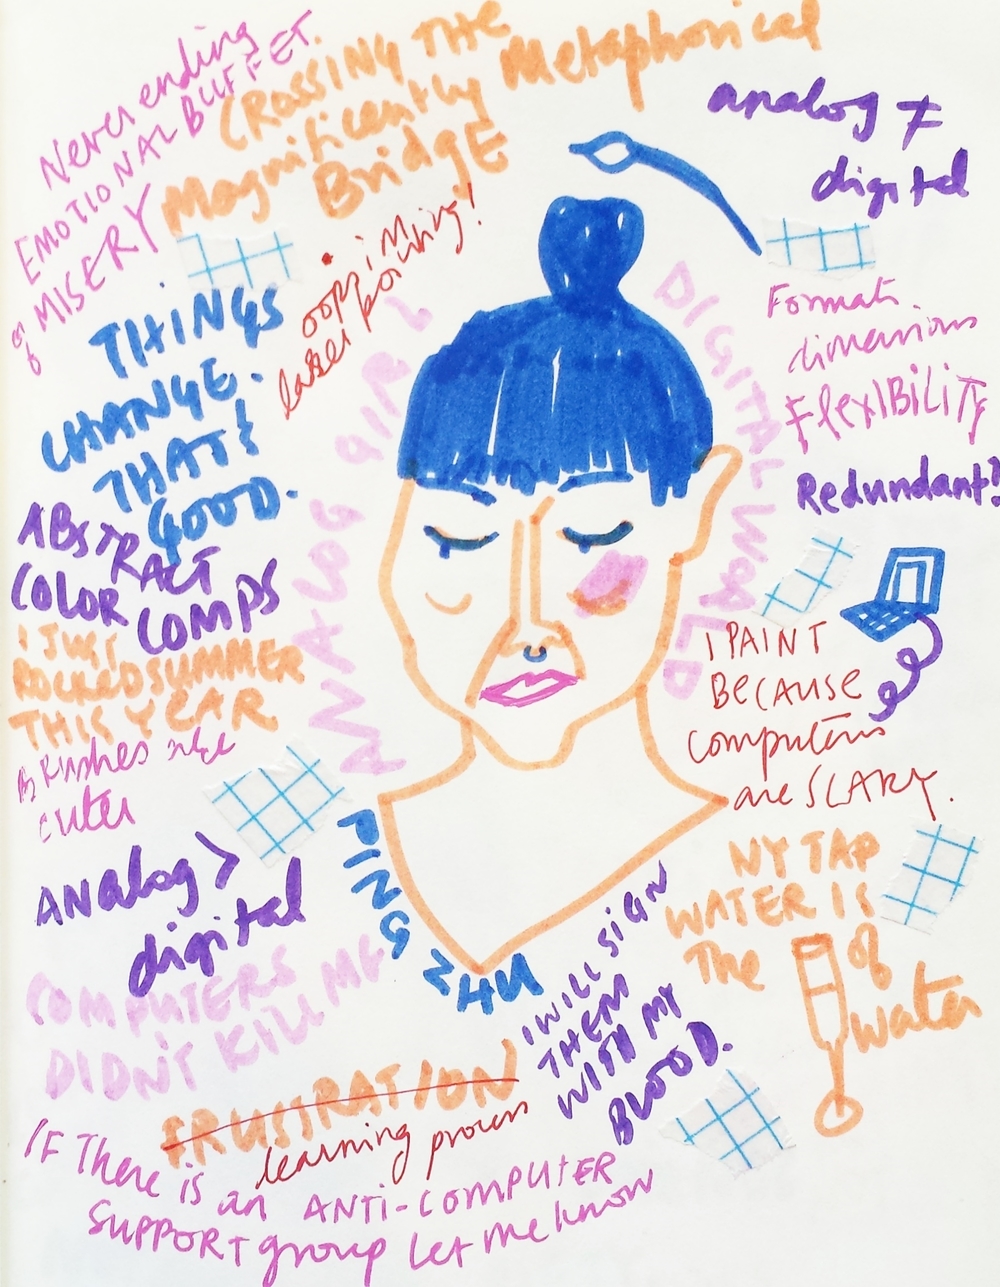 Never ending
EMOTIONAL BUFFET.
of MISERY
CROSSING THE
Magnificently Metaphorical
BridgE
analog ≠
digital
oops i'm
laser pointing!
THINGS
CHANGE.
THAT'S
GOOD.
ANALOG GIRL
DIGITAL WORLD
Format.
dimensions
FlexIBiLiTY
Redundant?
ABSTRACT
COLOR COMPS
i JUST
ROCKED SUMMER
THIS YEAR
BRushes are
cuter
I PAINT
BECAUSE
computers
are SCARY.
ANalog >
digital
NY TAP
WATER IS
The of
water
PING ZHU
COMPUTERS
DIDN'T KILL ME
I WILL SIGN
THEM
WITH MY
BLOOD.
FRUSTRATION
learning process
IF There is an ANTI-COMPUTER
SUPPORT group let me know